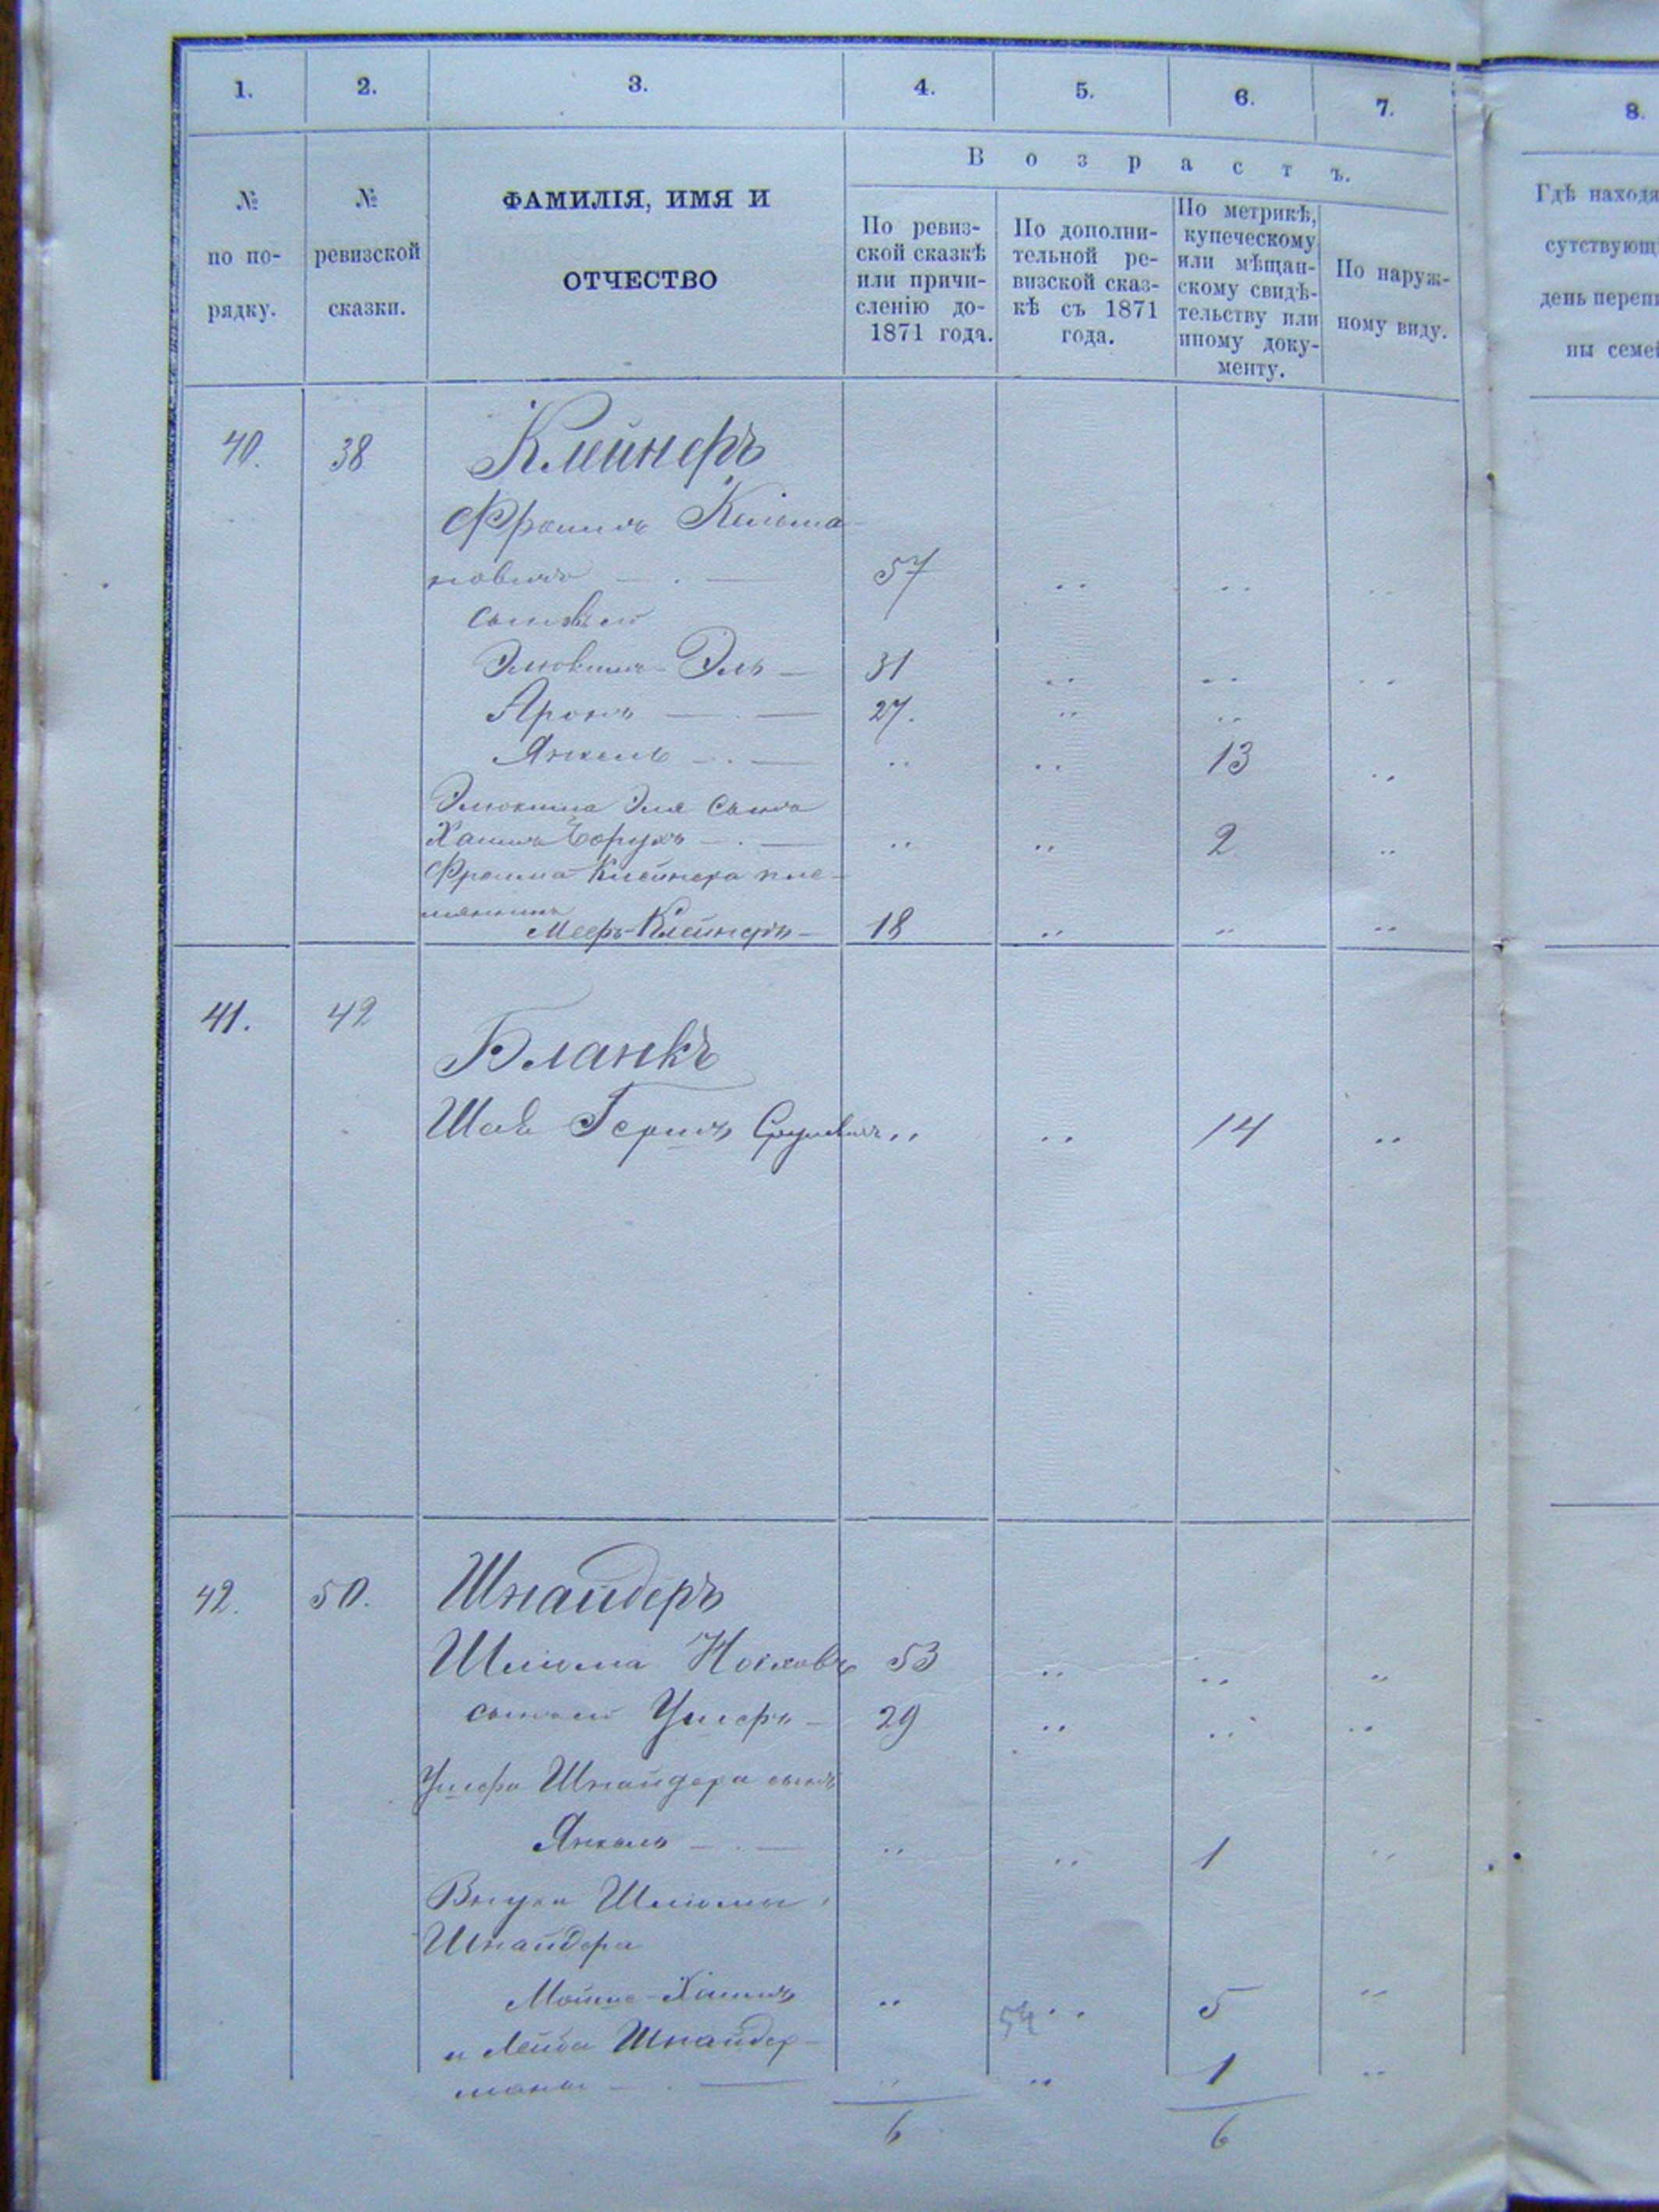 1. 2. 3. 4. 5. 6. 7. 8.
В о з р а с т ъ.
№
по по-
рядку.
№
ревизской
сказки.
ФАМИЛІЯ, ИМЯ И
ОТЧЕСТВО
По ревиз-
ской сказкѣ
или причи-
сленію до-
1871 года.
По дополни-
тельной ре-
визской сказ-
кѣ съ 1871
года.
По метрикѣ,
купеческому
или мѣщан-
скому свидѣ-
тельству или
иному доку-
менту.
По наруж-
ному виду.
Гдѣ находя
сутствующ
день переп
ны семе
40. 38 Клейнеръ
Фроимъ
новичъ — . — 57 .. .. ..
Эль — 31 .. .. ..
Аронъ — . — 27. .. .. ..
Янкель — . — .. .. 13 ..
Эля сынъ
Хаимъ Борухъ — . — .. .. 2 ..
Фроима Клейнера пле-
мянникъ
Мееръ Клейнеръ — 18 .. .. ..
41. 42 Бланкъ
Шая Гершъ .. .. 14 ..
42. 50. Шнайдеръ
Шлиома 53 .. .. ..
сыновей Ушеръ — 29 .. .. ..
Ушера Шнайдера сынъ
Янкель — . — .. .. 1 ..
Внуки Шлиомы
Шнайдера
Мойше-Хаимъ .. 54 .. 5 ..
и Лейба Шнайдер-
маны — . — .. .. 1 ..
6 6